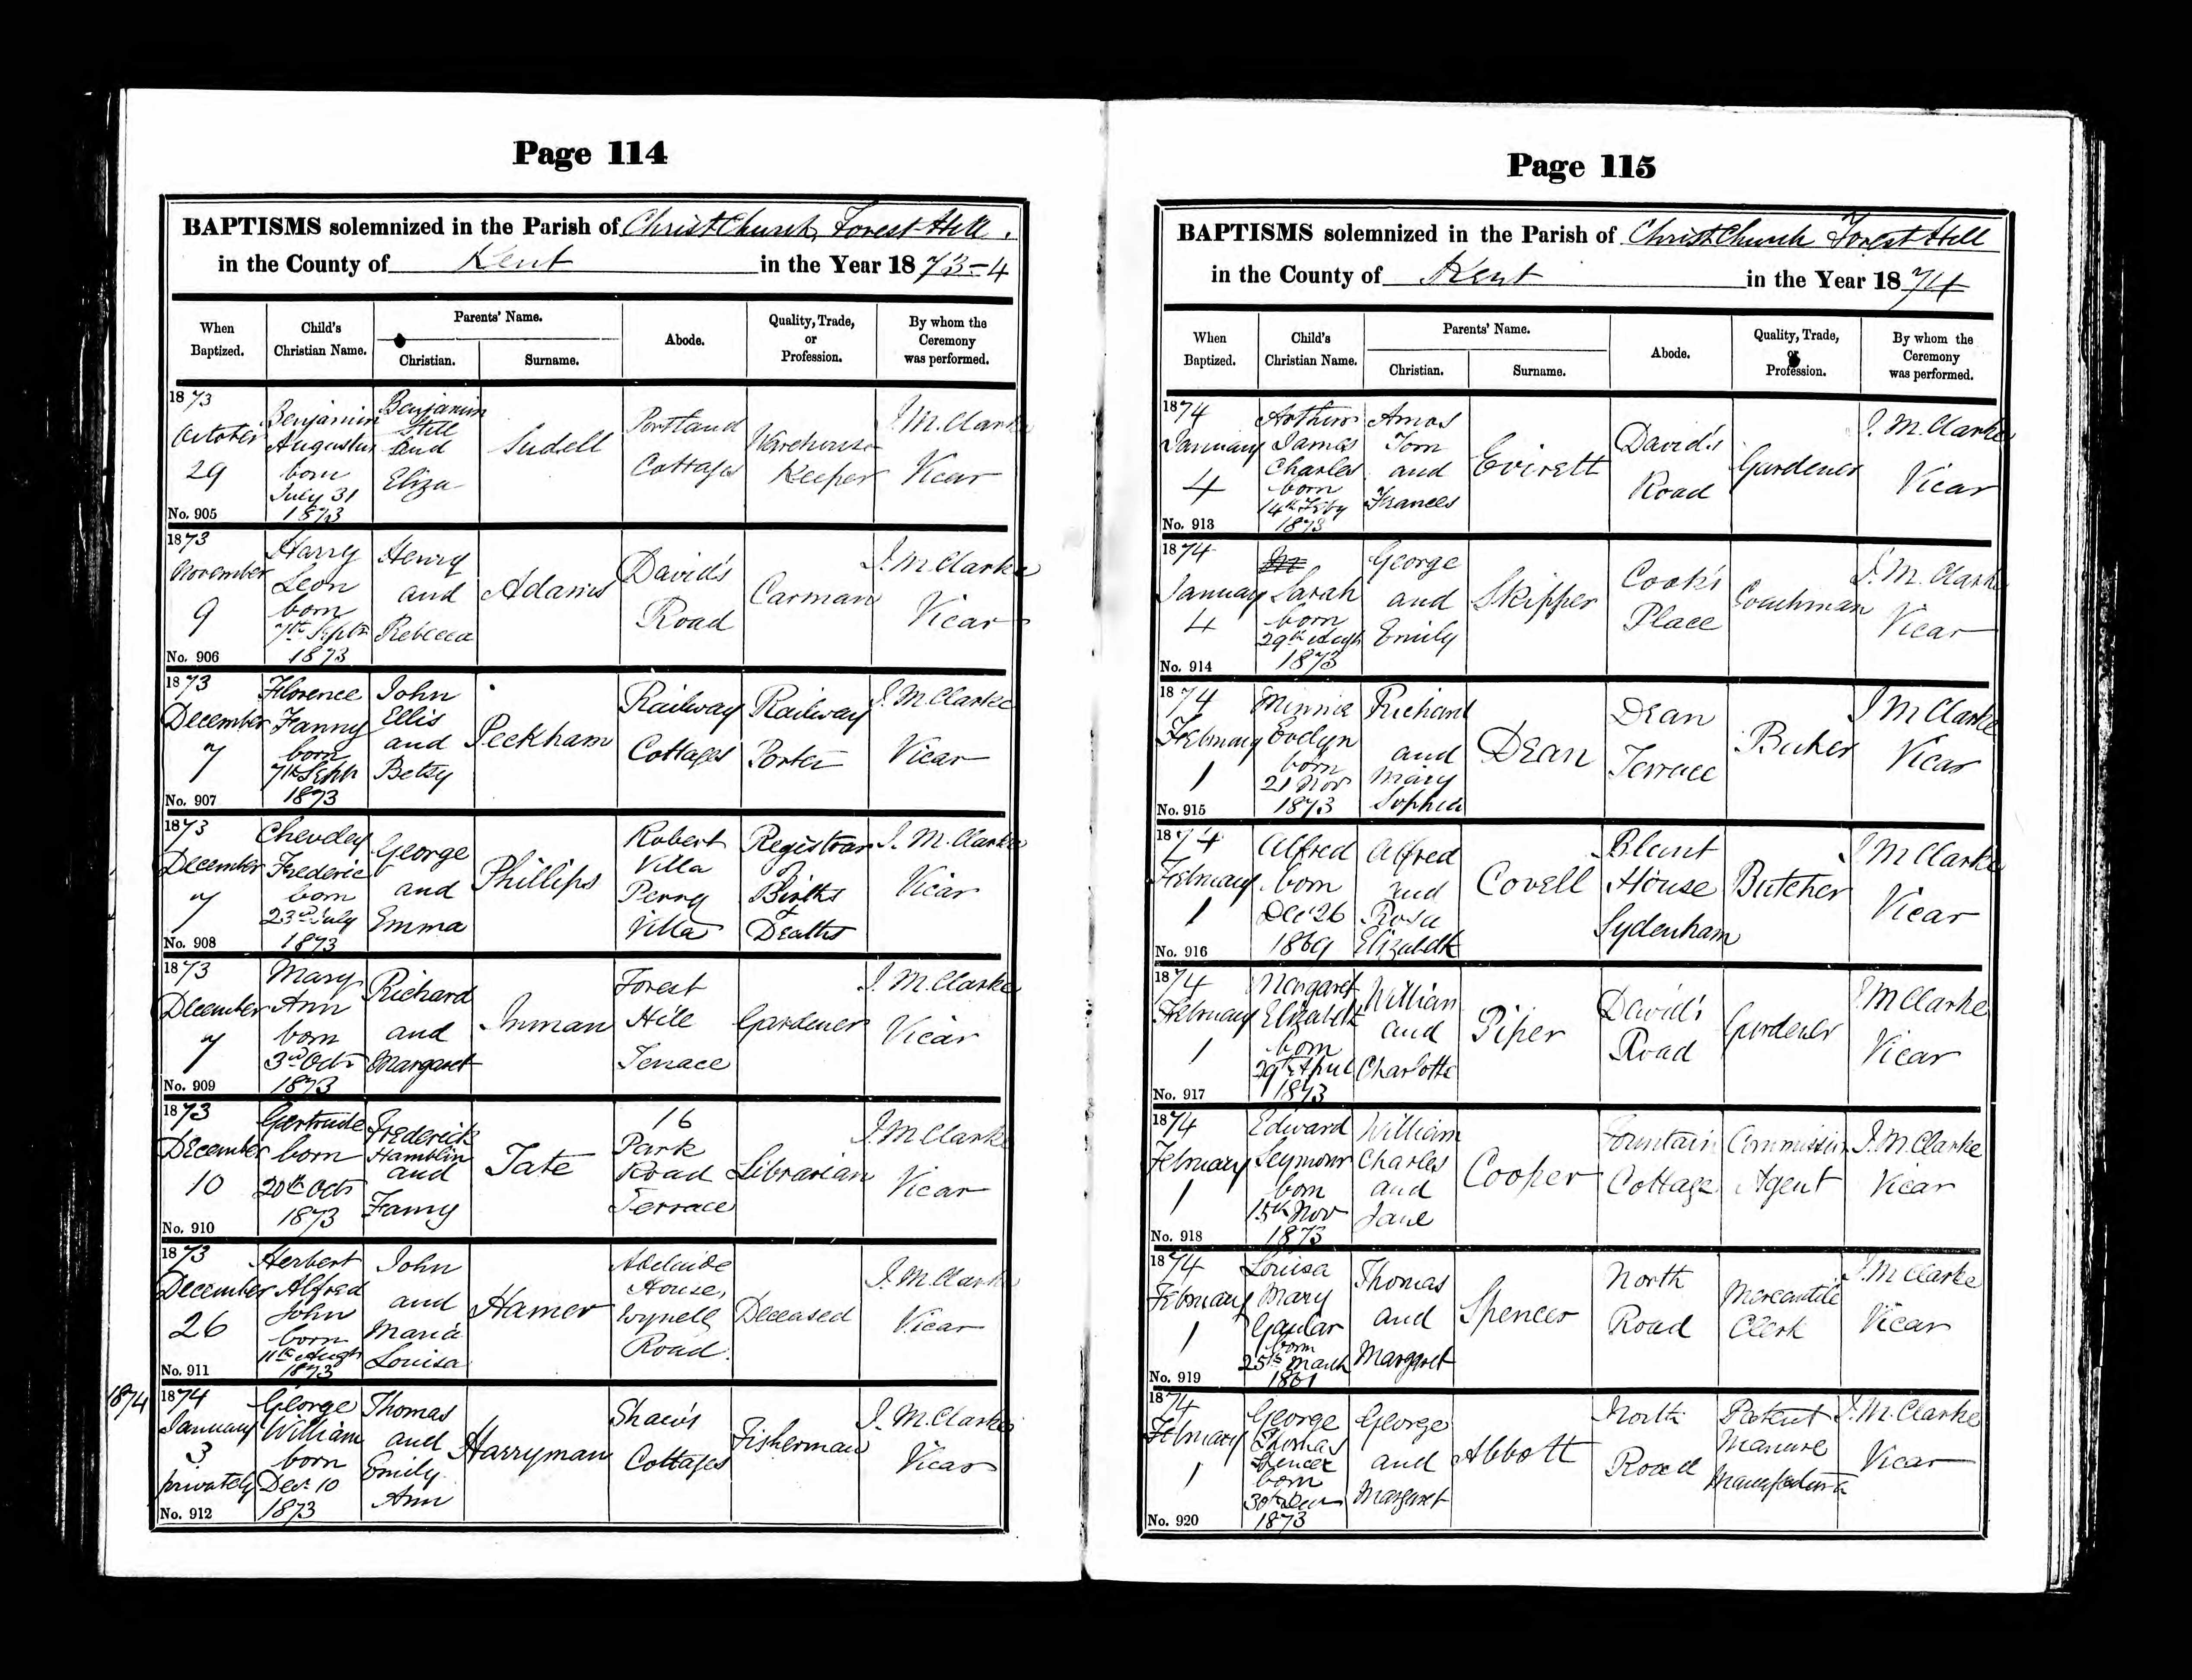 Page 114
BAPTISMS solemnized in the Parish of Christ Church, Forest Hill.
in the County of Kent in the Year 1873-4
When Baptized.
Child's Christian Name.
Parents' Name.
Christian.
Surname.
Abode.
Quality, Trade, or Profession.
By whom the Ceremony was performed.
1873
October
29
No. 905
Benjamin
Augustus
born
July 31
1873
Benjamin
and
Eliza
Sudell
Portland
Cottages
Warehouse
Keeper
J. M. Clarke
Vicar
1873
November
9
No. 906
Harry
Leon
born
7th Septr
1873
Henry
and
Rebecca
Adams
David's
Road
Carman
J. M. Clarke
Vicar
1873
December
7
No. 907
Florence
Fanny
born
7th Septr
1873
John
Ellis
and
Betsy
Peckham
Railway
Cottages
Railway
Porter
J. M. Clarke
Vicar
1873
December
7
No. 908
Frederic
born
23rd July
1873
George
and
Emma
Phillips
Robert
Villa
Perry
Villa
Registrar
of
Births
&
Deaths
J. M. Clarke
Vicar
1873
December
7
No. 909
Mary
Ann
born
3rd Octr
1873
Richard
and
Margaret
Inman
Forest
Hill
Terrace
Gardener
J. M. Clarke
Vicar
1873
December
10
No. 910
Gertrude
born
20th Octr
1873
Frederick
Hamblin
and
Fanny
Tate
16
Park
Road
Terrace
Librarian
J. M. Clarke
Vicar
1873
December
26
No. 911
Herbert
Alfred
John
born
11th Augt
1873
John
and
Maria
Louisa
Hamer
Adelaide
House,
Wynell
Road.
Deceased
J. M. Clarke
Vicar
1874
1874
January
3
privately
No. 912
George
William
born
Decr 10
1873
Thomas
and
Emily
Ann
Harryman
Shaw's
Cottages
Fisherman
J. M. Clarke
Vicar
Page 115
BAPTISMS solemnized in the Parish of Christ Church Forest Hill
in the County of Kent in the Year 1874
When Baptized.
Child's Christian Name.
Parents' Name.
Christian.
Surname.
Abode.
Quality, Trade, or Profession.
By whom the Ceremony was performed.
1874
January
4
No. 913
Arthur
James
Charles
born
14th Feby
1873
Amos
Tom
and
Frances
Evirett
David's
Road
Gardener
J. M. Clarke
Vicar
1874
January
4
No. 914
Sarah
born
29th Augt
1873
George
and
Emily
Skipper
Cook's
Place
Coachman
J. M. Clarke
Vicar
1874
February
1
No. 915
Minnie
Evelyn
born
21 Nov
1873
Richard
and
Mary
Sophia
Dean
Dean
Terrace
J M Clarke
Vicar
1874
February
1
No. 916
Alfred
born
Decr 26
1869
Alfred
and
Rosa
Elizabeth
Covell
Blunt
House
Sydenham
Butcher
J M Clarke
Vicar
1874
February
1
No. 917
Margaret
Elizabeth
born
29th April
1873
William
and
Charlotte
Piper
David's
Road
Gardener
J M Clarke
Vicar
1874
February
1
No. 918
Edward
Seymour
born
15th Nov
1873
William
Charles
and
Jane
Cooper
Fountain
Cottage
Commission
Agent
J. M. Clarke
Vicar
1874
February
1
No. 919
Louisa
Mary
born
25th March
1861
Thomas
and
Margaret
Spencer
North
Road
Mercantile
Clerk
J M Clarke
Vicar
1874
February
1
No. 920
George
Thomas
Spencer
born
1873
George
and
Margaret
Abbott
North
Road
Patent
Manure
Manufacturer
J. M. Clarke
Vicar